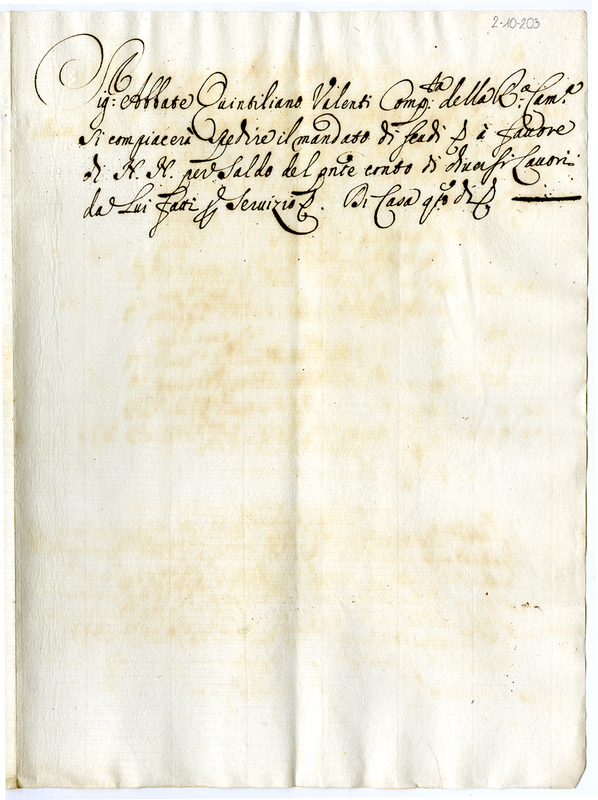 2-10-203
Sig:e Abbate Quintiliano Valenti Comp:ta della R.a Cam.a
si compiacerà spedire il mandato di scudi à favore
di N. N. per saldo del pnte conto di diversi Lavori
da Lui fatti Servizio. Di Casa qto di